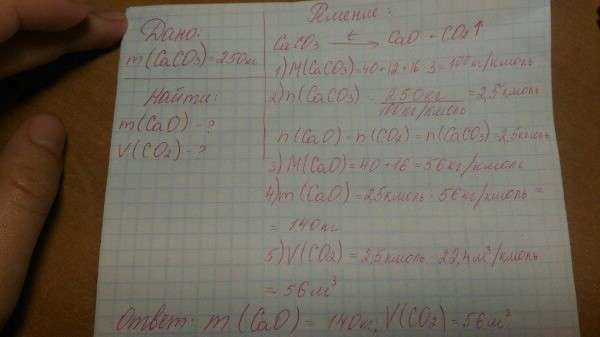 Дано:
m(CaCO3)=250кг
Найти:
m(CaO)-?
V(CO2)-?
Решение:
CaCO3 t→ CaO + CO2↑
1) M(CaCO3)=40+12+16·3=100кг/кмоль
2) n(CaCO3) = 250кг/100кг/кмоль = 2,5кмоль
n(CaO) = n(CO2) = n(CaCO3) = 2,5кмоль
3) M(CaO) = 40+16 = 56кг/кмоль
4) m(CaO) = 2,5кмоль · 56кг/кмоль =
= 140кг
5) V(CO2) = 2,5кмоль · 22,4м³/кмоль
= 56м³
Ответ: m(CaO) = 140кг, V(CO2) = 56м³